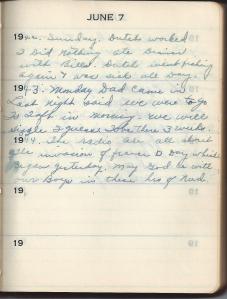 JUNE 7
1942. Sunday. Dutch worked
I did nothing ate Dinner
with Bills. Dutch went fishing
again I was sick all Day.
1943. Monday Dad came in
Last night said we were to go
To Taft in morning. we will
I guess 3 weeks.
1944. The radio all about
the invasion of france D Day which
Began yesterday. May God be with
our Boys in these hrs of need.
19
19